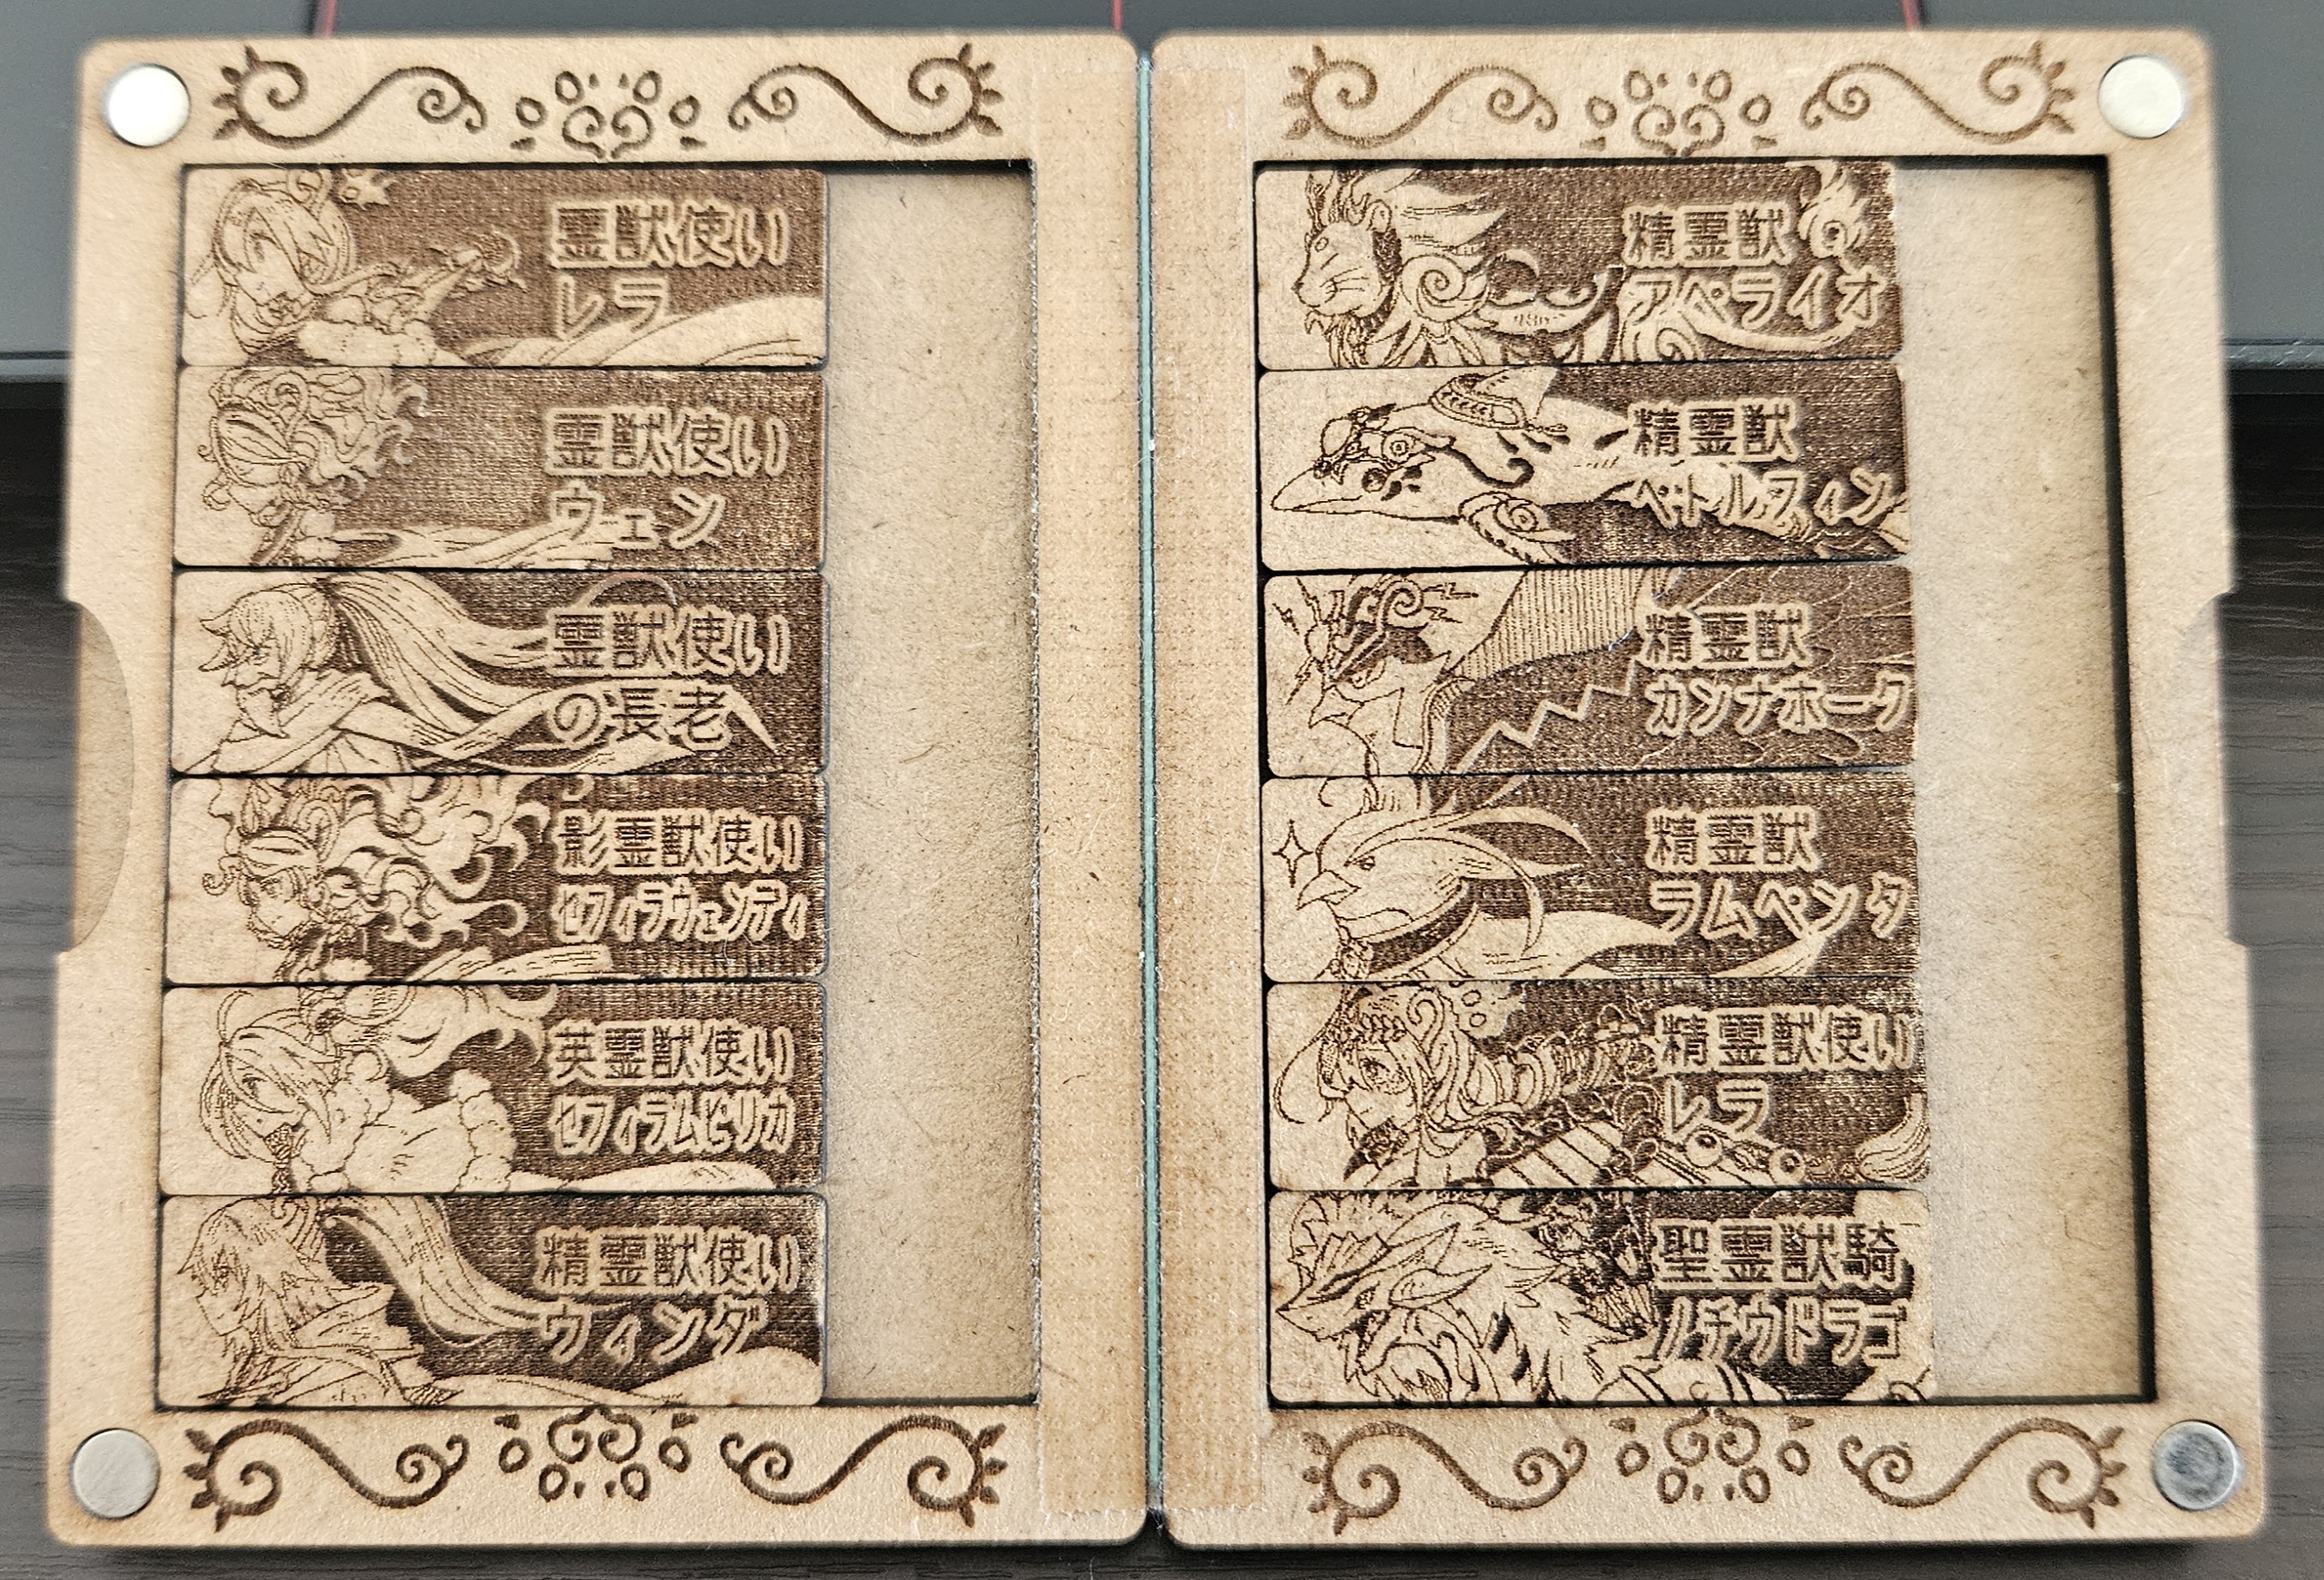 霊獣使い
レラ
霊獣使い
ウェン
霊獣使い
の長老
影霊獣使い
セフィラウェンディ
英霊獣使い
セフィラムピリカ
精霊獣使い
ウィンダ
精霊獣
アペライオ
精霊獣
ペトルフィン
精霊獣
カンナホーク
精霊獣
ラムペンタ
精霊獣使い
レラ
聖霊獣騎
ノチウドラゴ